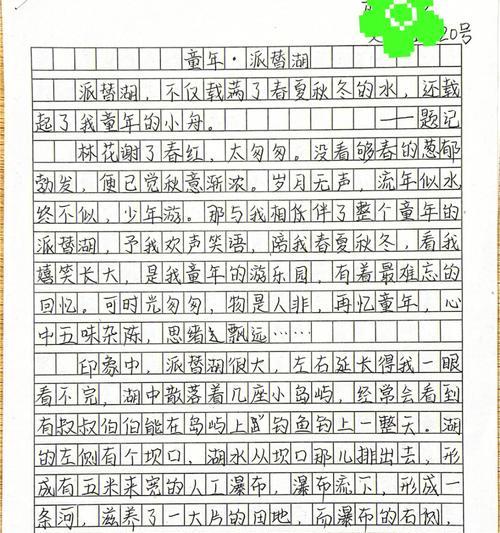 20号
童年·派替湖
派替湖，不仅载满了春夏秋冬的水，还载
起了我童年的小舟。 ——题记
林花谢了春红，太匆匆。没看够春的葱郁
勃发，便已觉秋意渐浓。岁月无声，流年似水，
终不似，少年游。那与我相依伴了整个童年的
派替湖，予我欢声笑语，陪我春夏秋冬，看我
嬉笑长大，是我童年的游乐园，有着最难忘的
回忆。可时光匆匆，物是人非，再忆童年，心
中五味杂陈，思绪飘远……
印象中，派替湖很大，左右延长得我一眼
看不完，湖中散落着几座小岛屿，经常会看到
有叔叔伯伯能在岛屿上钓鱼钓上一整天。湖
的左侧有个坝口，湖水从坝口那儿排出去，形
成有五米来宽的人工瀑布，瀑布流下，形成一
条河，滋养了一大片的田地，而瀑布的右侧，